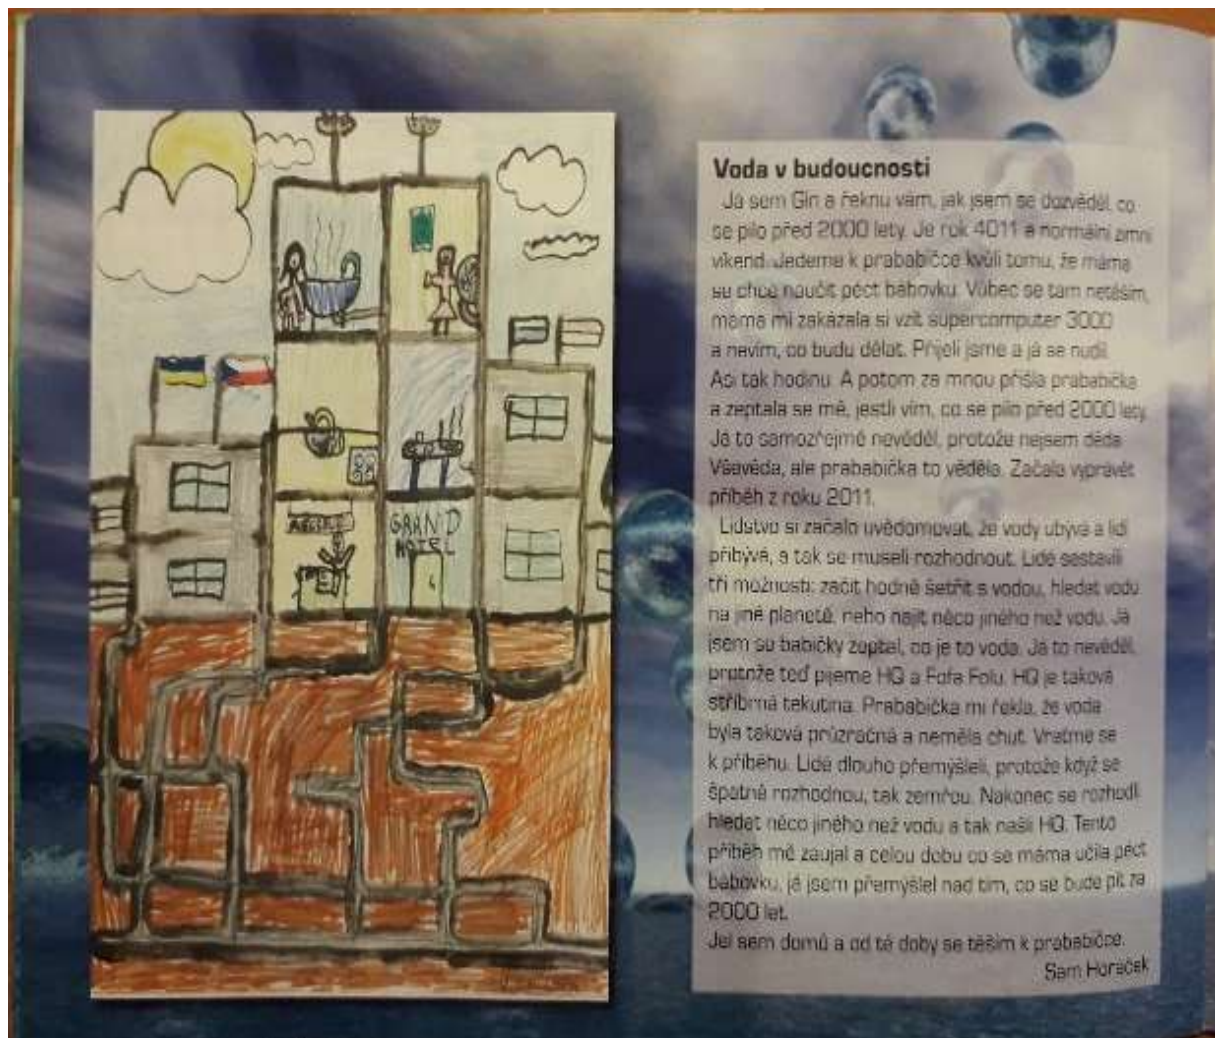 GRAND
HOTEL
Voda v budoucnosti
Já sem Gin a řeknu vám, jak jsem se dozvěděl, co
se pilo před 2000 lety. Je rok 4011 a normální zimní
víkend. Jedeme k prababičce kvůli tomu, že máma
se chce naučit péct bábovku. Vůbec se tam netěším,
máma mi zakázala si vzít supercomputer 3000
a nevím, co budu dělat. Přijeli jsme a já se nudil.
Asi tak hodinu. A potom za mnou přišla prababička
a zeptala se mě, jestli vím, co se pilo před 2000 lety.
Já to samozřejmě nevěděl, protože nejsem děda
Vševěda, ale prababička to věděla. Začala vyprávět
příběh z roku 2011.
Lidstvo si začalo uvědomovat, že vody ubývá a lidí
přibývá, a tak se museli rozhodnout. Lidé sestavili
tři možnosti: začít hodně šetřit s vodou, hledat vodu
na jiné planetě, nebo najít něco jiného než vodu. Já
jsem se babičky zeptal, co je to voda. Já to nevěděl,
protože teď pijeme HQ a Fofa Folu. HQ je taková
stříbrná tekutina. Prababička mi řekla, že voda
byla taková průzračná a neměla chuť. Vraťme se
k příběhu. Lidé dlouho přemýšleli, protože když se
špatně rozhodnou, tak zemřou. Nakonec se rozhodli
hledat něco jiného než vodu a tak našli HQ. Tento
příběh mě zaujal a celou dobu co se máma učila péct
bábovku, já jsem přemýšlel nad tím, co se bude pít za
2000 let.
Jel sem domů a od té doby se těším k prababičce.
Sam Horáček